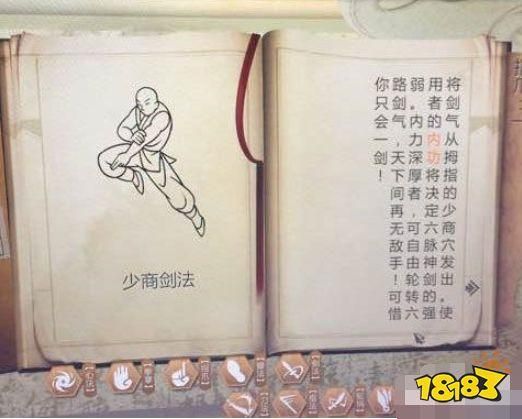 少商剑法
将剑气从拇指的少商穴发出。使
用者的内功将决定六脉神剑的强
弱。内力深厚者，可自由轮转六
路剑气，天下间再无敌手！可惜
你只会一剑！
18183